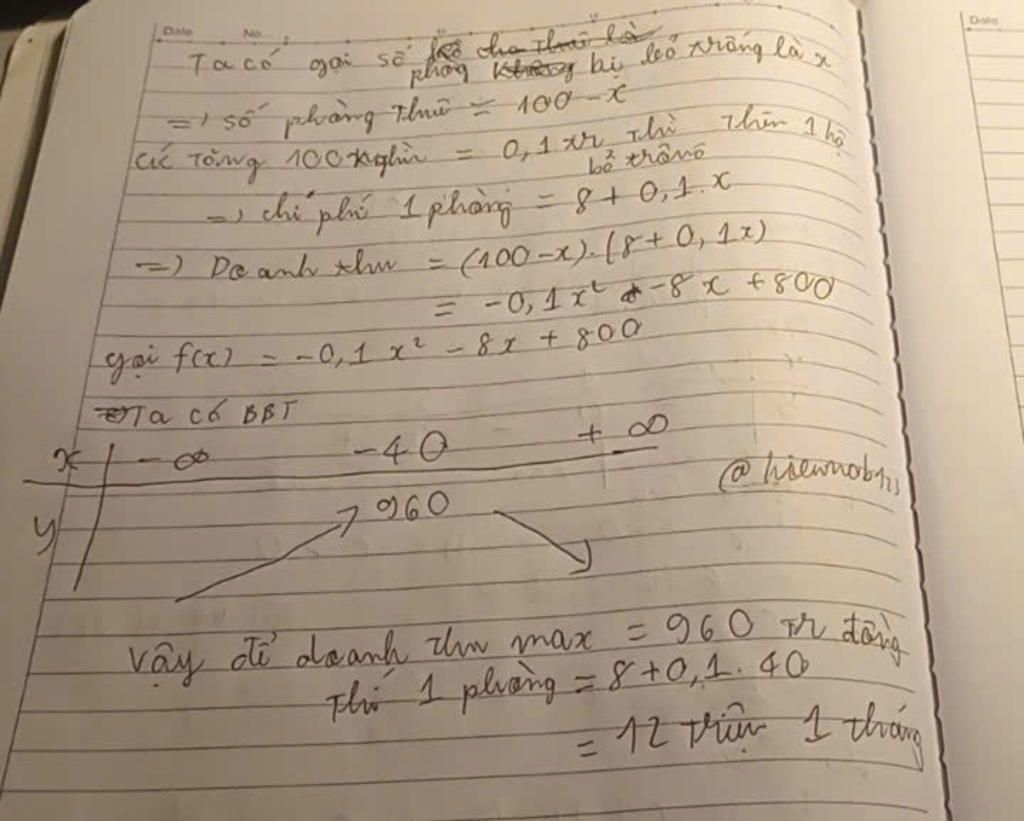 Date No. Date
Ta có gọi số phòng bị bỏ trống là x
=> số phòng thuê = 100 - x
Cứ tăng 100 nghìn = 0,1 tr thì thêm 1 hộ
bỏ trống
=> chi phí 1 phòng = 8 + 0,1.x
=> Doanh thu = (100-x).(8+0,1x)
= -0,1x² -8x +800
gọi f(x) = -0,1x² - 8x + 800
Ta có BBT
x -∞ -40 +∞
@hiewnob
y 960
Vậy để doanh thu max = 960 tr đồng
Thì 1 phòng = 8+0,1.40
= 12 triệu 1 tháng